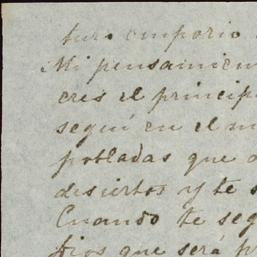 turo emporio
Mi pensamien
eres el princip
seguí en el m
pobladas que
desiertos y te s
Cuando te seg
dios que será p